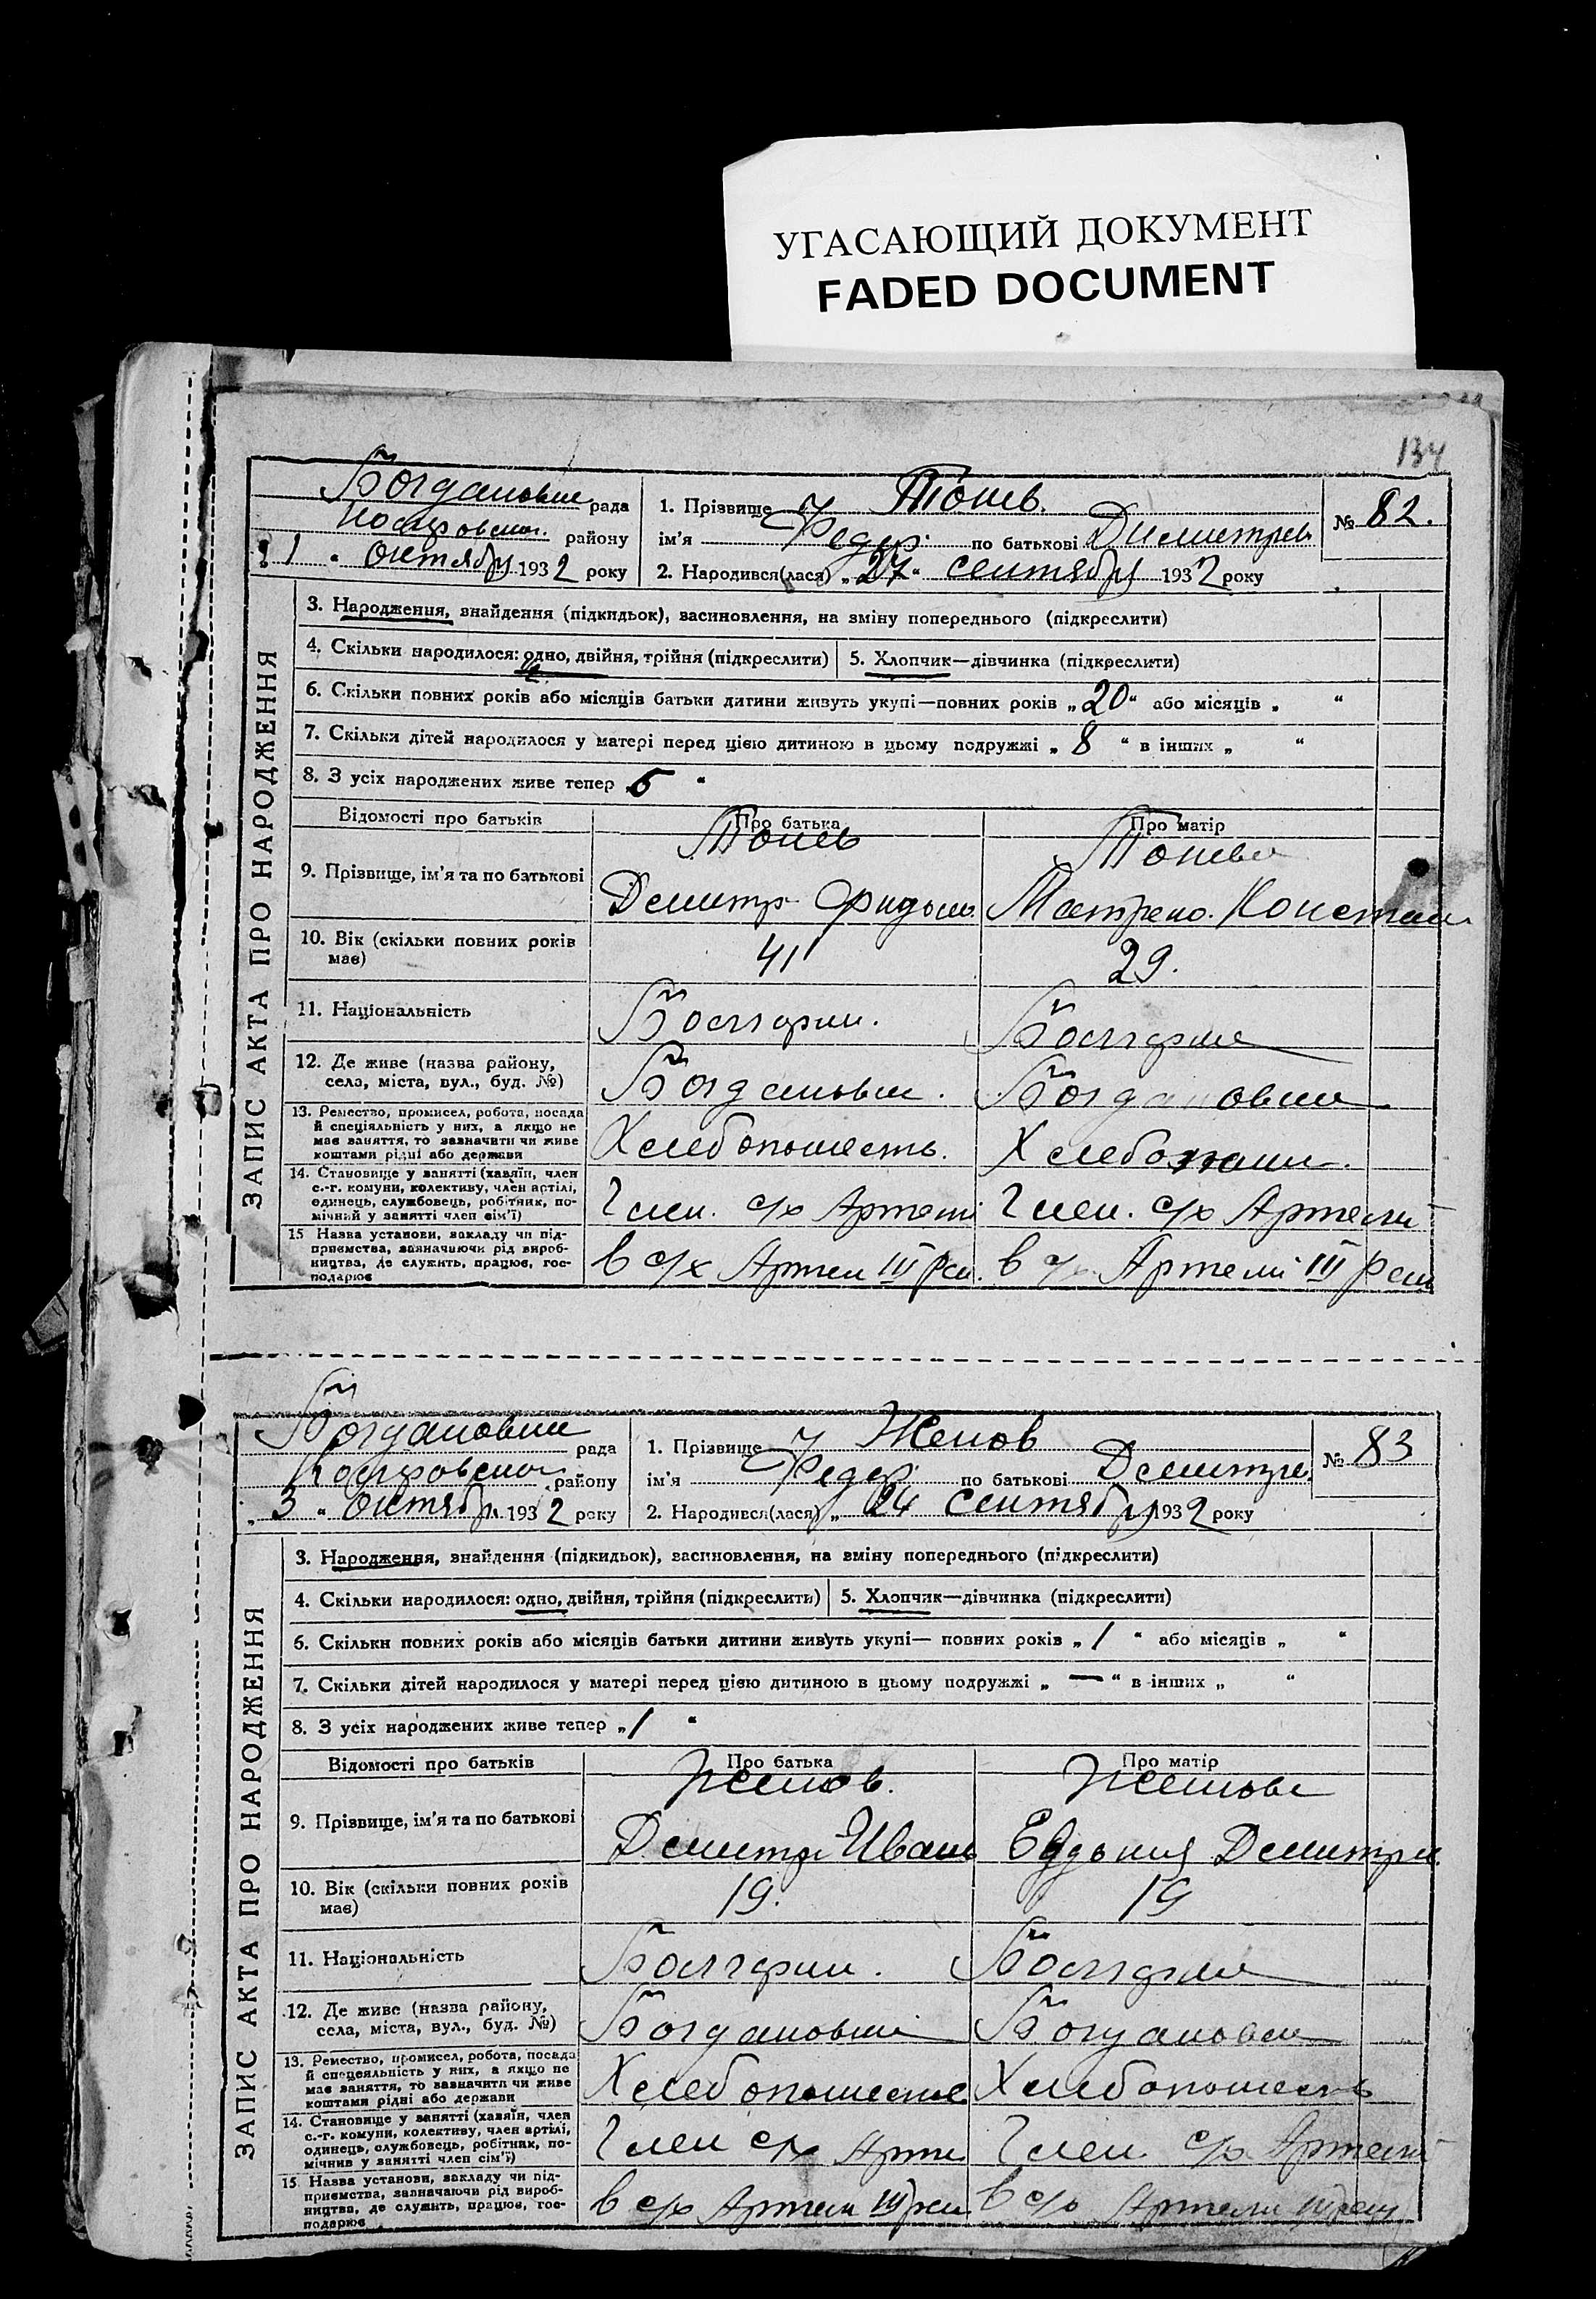 УГАСАЮЩИЙ ДОКУМЕНТ
FADED DOCUMENT
134
Богдановка рада
района
1 " октября 1932 року
1. Прізвище Тонев.
ім'я Федор. по батькові Димитрев
2. Народився(лася) „27" сентября 1932 року
№ 82.
ЗАПИС АКТА ПРО НАРОДЖЕННЯ
3. Народження, знайдення (підкидьок), засиновлення, на зміну попереднього (підкреслити)
4. Скільки народилося: одно, двійня, трійня (підкреслити) 5. Хлопчик—дівчинка (підкреслити)
6. Скільки повних років або місяців батьки дитини живуть укупі—повних років „20" або місяців „ "
7. Скільки дітей народилося у матері перед цією дитиною в цьому подружжі „ 8 " в інших „ "
8. З усіх народжених живе тепер 5 "
Відомості про батьків Про батька Про матір
9. Прізвище, ім'я та по батькові
Тонев Тонева
Демитр
10. Вік (скільки повних років має) 41 29.
11. Національність
12. Де живе (назва району, села, міста, вул., буд. №)
13. Ремество, промисел, робота, посада
й спеціяльність у них, а якщо не
має заняття, то зазначити чи живе
коштами рідні або держави
14. Становище у занятті (хазяїн, член
с.-г. комуни, колективу, член артілі,
одинець, службовець, робітник, по-
мічний у занятті член сім'ї)
Член. с/х Артели Член. с/х Артели
15 Назва установи, закладу чи під-
приємства, зазначаючи рід вироб-
ництва, де служить, працює, гос-
подарює
в с/х Артели III в с/х Артели III
Богдановка рада
району
„ 3 " октября 1932 року
1. Прізвище Женов
ім'я Федор по батькові
2. Народився(лася) „ 24 сентября 1932 року
№ 83
ЗАПИС АКТА ПРО НАРОДЖЕННЯ
3. Народження, знайдення (підкидьок), засиновлення, на зміну попереднього (підкреслити)
4. Скільки народилося: одно, двійня, трійня (підкреслить) 5. Хлопчик—дівчинка (підкреслити)
6. Скільки повних років або місяців батьки дитини живуть укупі— повних років „ 1 " або місяців „ "
7. Скільки дітей народилося у матері перед цією дитиною в цьому подружжі „ — " в інших „ "
8. З усіх народжених живе тепер „1 "
Відомості про батьків Про батька Про матір
9. Прізвище, ім'я та по батькові
Женов. Женова
Демитр Иван
10. Вік (скільки повних років має) 19. 19
11. Національність
12. Де живе (назва району, села, міста, вул., буд. №)
13. Ремество, промисел, робота, посада
й спецеяльність у них, а якщо не
має заняття, то зазначити чи живе
коштами рідні або держави
14. Становище у занятті (хазяїн, член
с.-г. комуни, колективу, член артілі,
одинець, службовець, робітник, по-
мічнив у занятті член сім'ї)
Член с/х Член. с/х Артели
15 Назва установи, закладу чи під-
приємства, зазначаючи рід вироб-
ництва, де служить, працює, гос-
подарює
в с/х Артели III в с/х Артели III